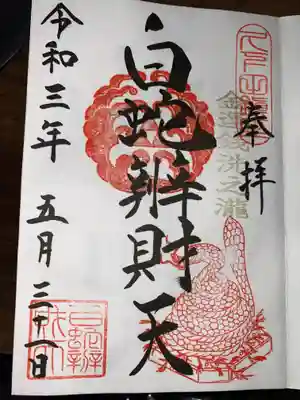 奉拝
金運銭洗之瀧
白蛇辨財天
令和三年 五月 三十一日
白蛇辨財天